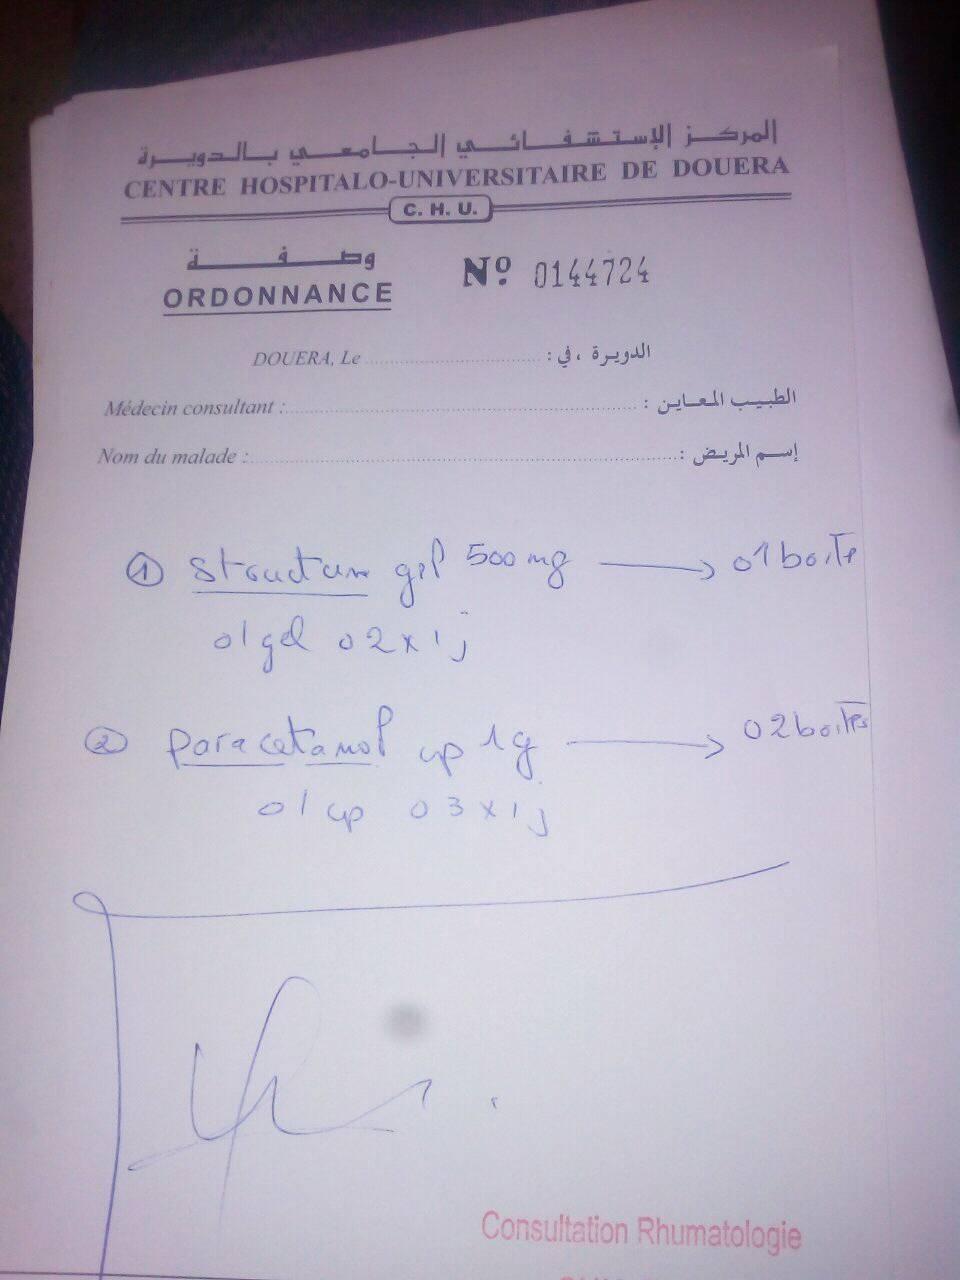 المركز الإستشفائي الجامعي بالدويرة
CENTRE HOSPITALO-UNIVERSITAIRE DE DOUERA
C. H. U.
وصفة
ORDONNANCE
Nº. 0144724
DOUERA, Le ............................ الدويرة ، في :
Médecin consultant : ............................ الطبيب المعاين :
Nom du malade : ............................ إسم المريض :
① Structum gel 500 mg → 01 boite
01 gel 02 x 1 j
② paracetamol cp 1g → 02 boites
01 cp 03 x 1 j
Consultation Rhumatologie